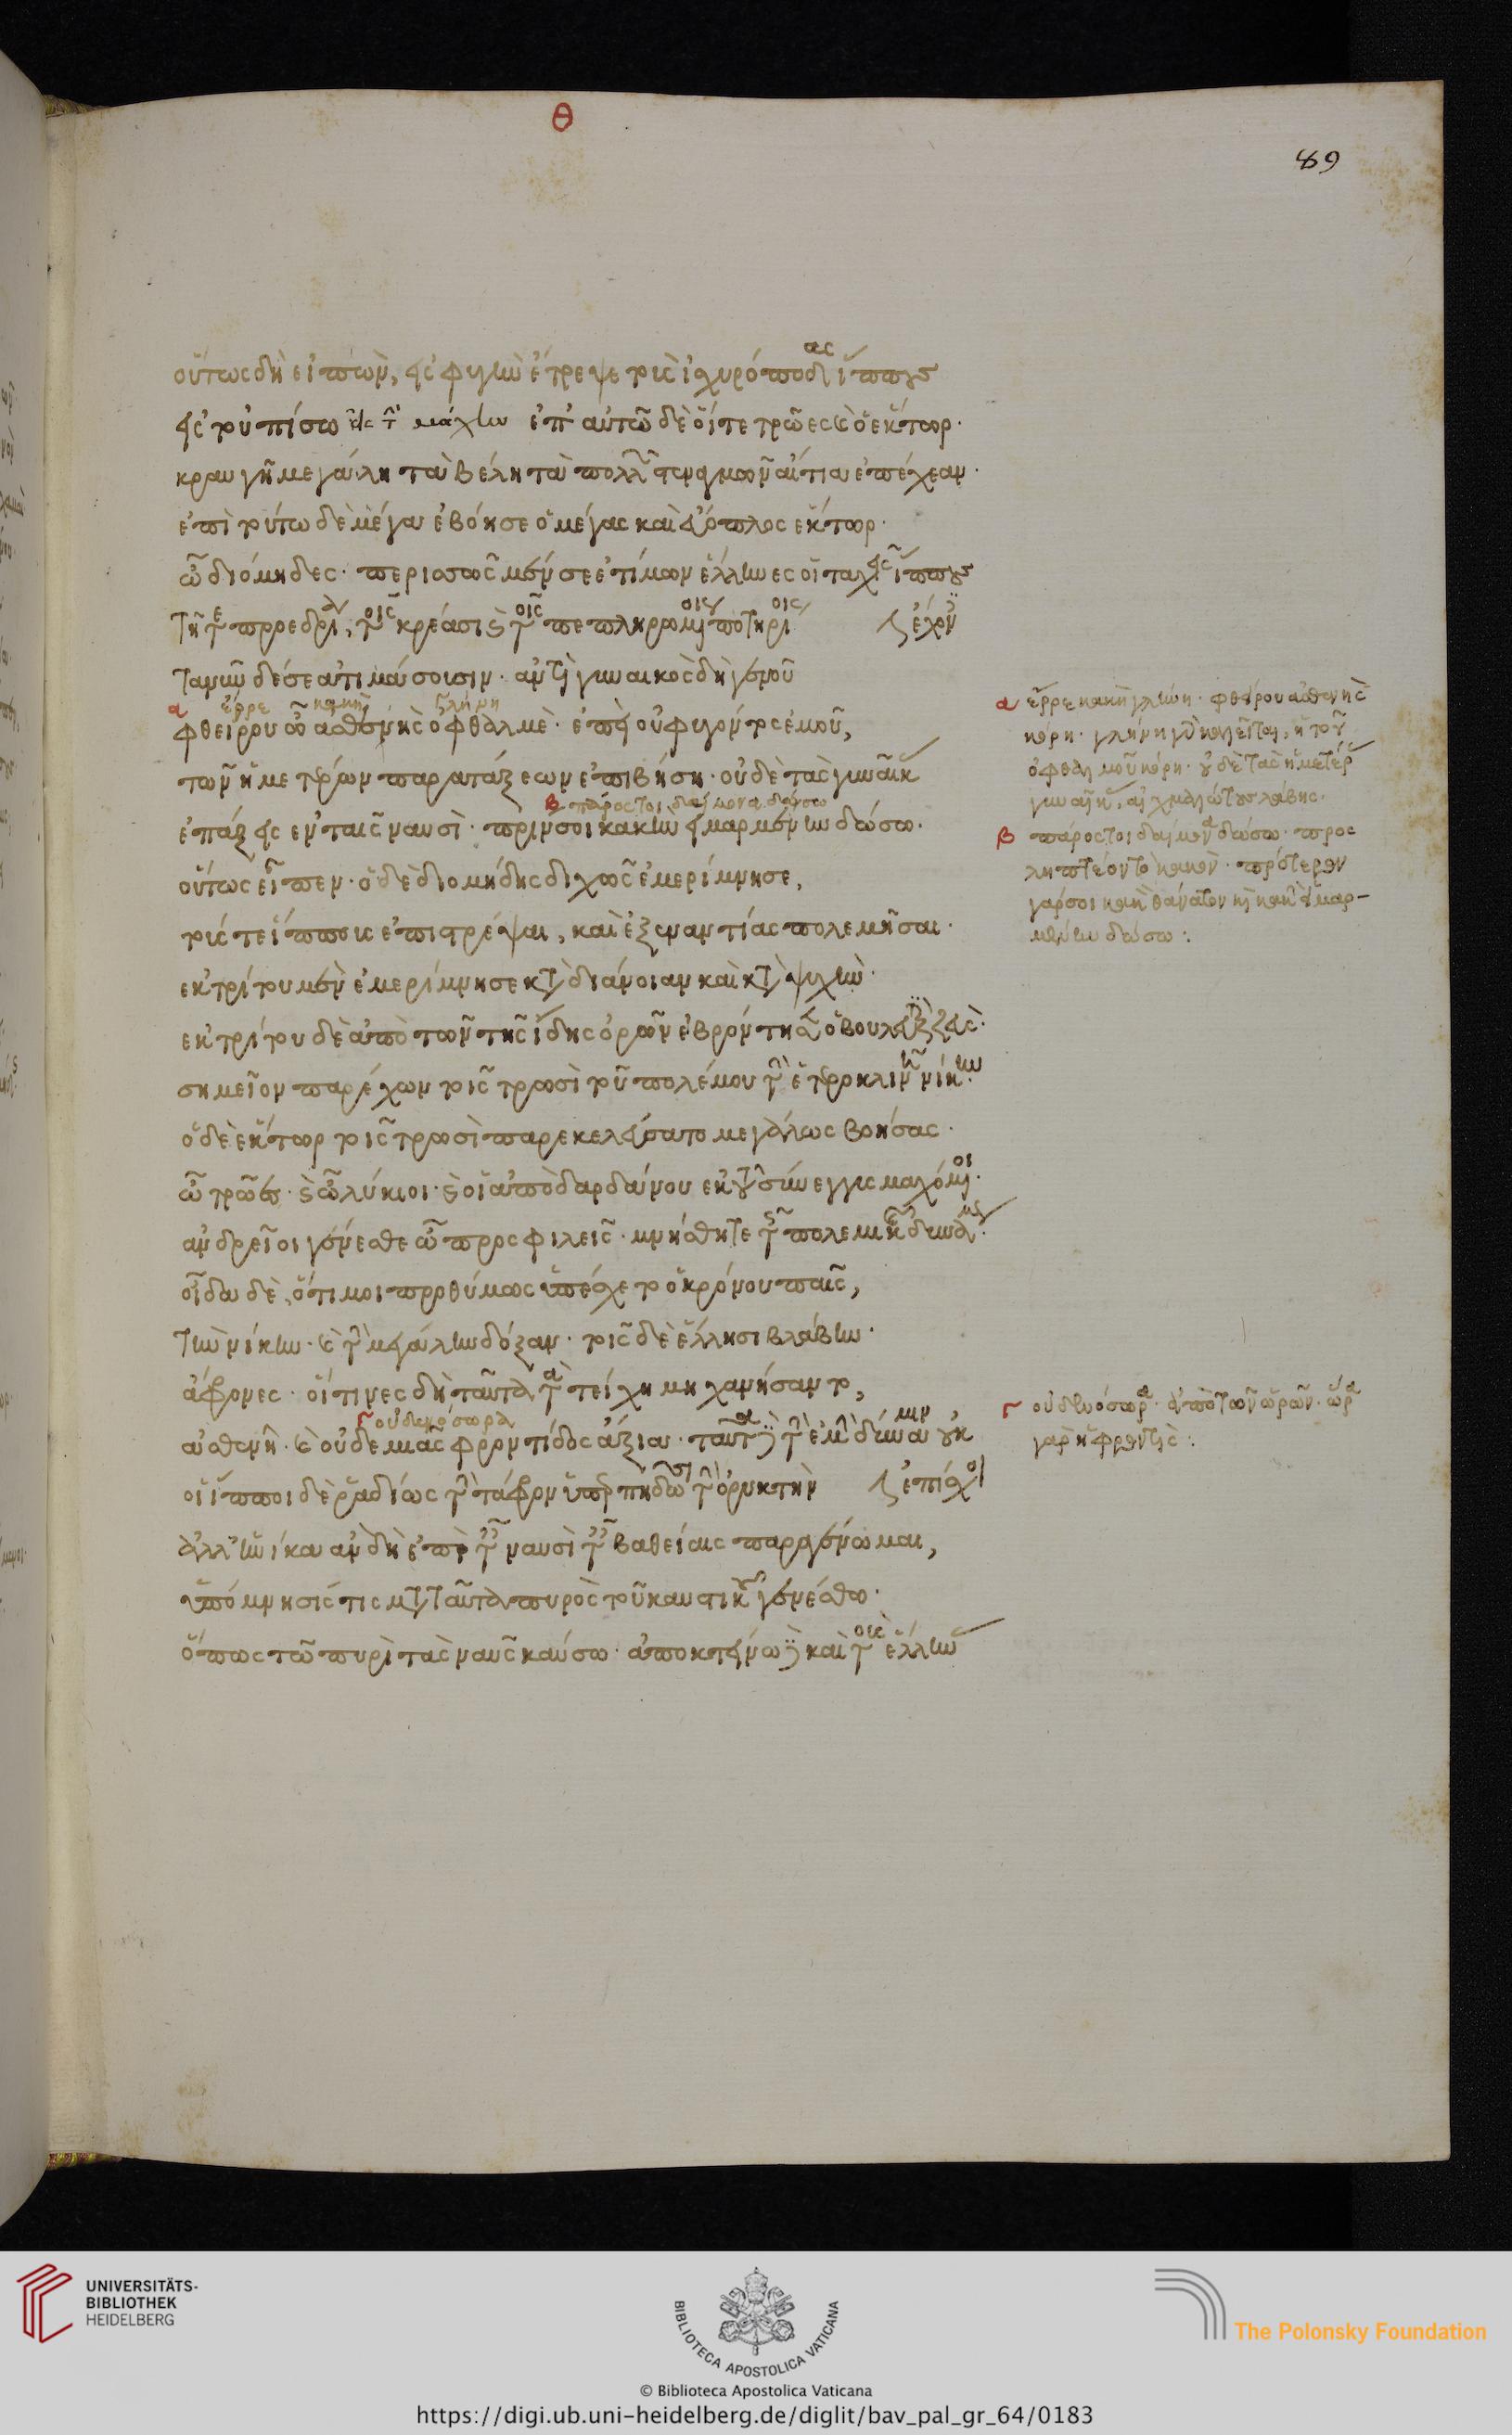 θ
89
οὕτως δὴ εἰπὼν, εἰς φυγὴν ἔτρεψε τοὺς ἰσχυρόποδας ἵππους
εἰς τοὐπίσω εἰς τὴν μάχην ἐπ' αὐτῶ δὲ οἵ τε τρῶες καὶ ὁ ἕκτωρ·
κραυγῆ μεγάλη τὰ βέλη τὰ πολλῶν στεναγμῶν αἴτια ἐπέχεαν·
ἐπὶ τούτω δὲ μέγα ἐβόησε ὁ μέγας καὶ εὔοπλος ἕκτωρ·
ὦ διόμηδες· περισσῶς μέν σε ἐτίμων ἕλληνες οἱ ταχεῖς ἵππους
τῆ τε προεδρία, τοῖς κρέασι καὶ τοῖς πεπληρωμένοις ποτηρίοις ἔχοντες
τανῦν δέ σε ἀτιμάσουσιν· ἀντὶ γυναικὸς δὴ γενοῦ
α ἔρρε κακὴ γλήνη
φθείρου ὦ ἀσθενὴς ὀφθαλμὲ· ἐπεὶ οὐ φυγόντος ἐμοῦ,
τῶν ἡμετέρων παρατάξεων ἐπιβήση· οὐδὲ τὰς γυναῖκας
β πάρος τοι δαίμονα δώσω
ἐπάξεις ἐν ταῖς ναυσὶ· πρίν σοι κακὴν εἱμαρμένην δώσω·
οὕτως εἶπεν· ὁ δὲ διομήδης διχῶς ἐμερίμνησε,
τούς τε ἵππους ἐπιστρέψαι, καὶ ἐξεναντίας πολεμῆσαι·
ἐκ τρίτου μὲν ἐμερίμνησε κατὰ διάνοιαν καὶ κατὰ ψυχὴν·
ἐκ τρίτου δὲ ἀπὸ τῶν τῆς ἴδης ὀρῶν ἐβρόντησεν ὁ βουλευτικὸς ζεὺς·
σημεῖον παρέχων τοῖς τρωσὶ τοῦ πολέμου τὴν ἑτεροκλινῆ νίκην·
ὁ δὲ ἕκτωρ τοῖς τρωσὶ παρεκελεύσατο μεγάλως βοήσας·
ὦ τρῶες· καὶ ὦ λύκιοι· καὶ οἱ ἀπὸ δαρδάνου ἐκ τοῦ σύνεγγυς μαχόμενοι·
ἀνδρεῖοι γένεσθε ὦ προσφιλεῖς· μνήσθητε τῆς πολεμικῆς δυνάμεως·
οἶδα δὲ, ὅτι μοι προθύμως ὑπέσχετο ὁ κρόνου παῖς,
τὴν νίκην· καὶ τὴν μεγάλην δόξαν· τοῖς δὲ ἕλλησι βλάβην·
ἄφρονες· οἵτινες δὴ ταῦτα τὰ τείχη μηχανήσαντο,
γ οὐδενόσωρα
ἀσθενῆ· καὶ οὐδεμιᾶς φροντίδος ἄξια· ταῦτα δὲ τὴν ἐμὴν δύναμιν οὐκ
οἱ ἵπποι δὲ ῥαδίως τὴν τάφρον ὑπερπηδῶσι τὴν ὀρυκτὴν ἐπίσχοι
ἀλλ' ἡνίκα ἂν δὴ ἐπὶ ταῖς ναυσὶ ταῖς βαθείαις παραγένωμαι,
ὑπόμνησίς τις μετὰ ταῦτα πυρὸς τοῦ καυστικοῦ γενέσθω·
ὅπως τῶ πυρὶ τὰς ναῦς καύσω· ἀποκτείνω δὲ καὶ τοὺς ἕλληνας
α ἔρρε κακὴ γλήνη· φθείρου ἀσθενὴς
κόρη· γλήνη γὰρ καλεῖται, ἡ τοῦ
ὀφθαλμοῦ κόρη· οὐδὲ τὰς ἡμετέρας
γυναῖκας, αἰχμαλώτους λάβης·
β πάρος τοι δαίμονα δώσω· προσ
ληπτέον τὸ κακὸν· πρότερον
γάρ σοι κακὴν θάνατον καὶ κακὴν εἱμαρ-
μένην δώσω:
γ οὐδενόσωρα· ἀπὸ τῶν ὠρῶν· ὥρα
γὰρ ἡ φροντὶς:
UNIVERSITÄTS-
BIBLIOTHEK
HEIDELBERG
BIBLIOTECA APOSTOLICA VATICANA
The Polonsky Foundation
© Biblioteca Apostolica Vaticana
https://digi.ub.uni-heidelberg.de/diglit/bav_pal_gr_64/0183